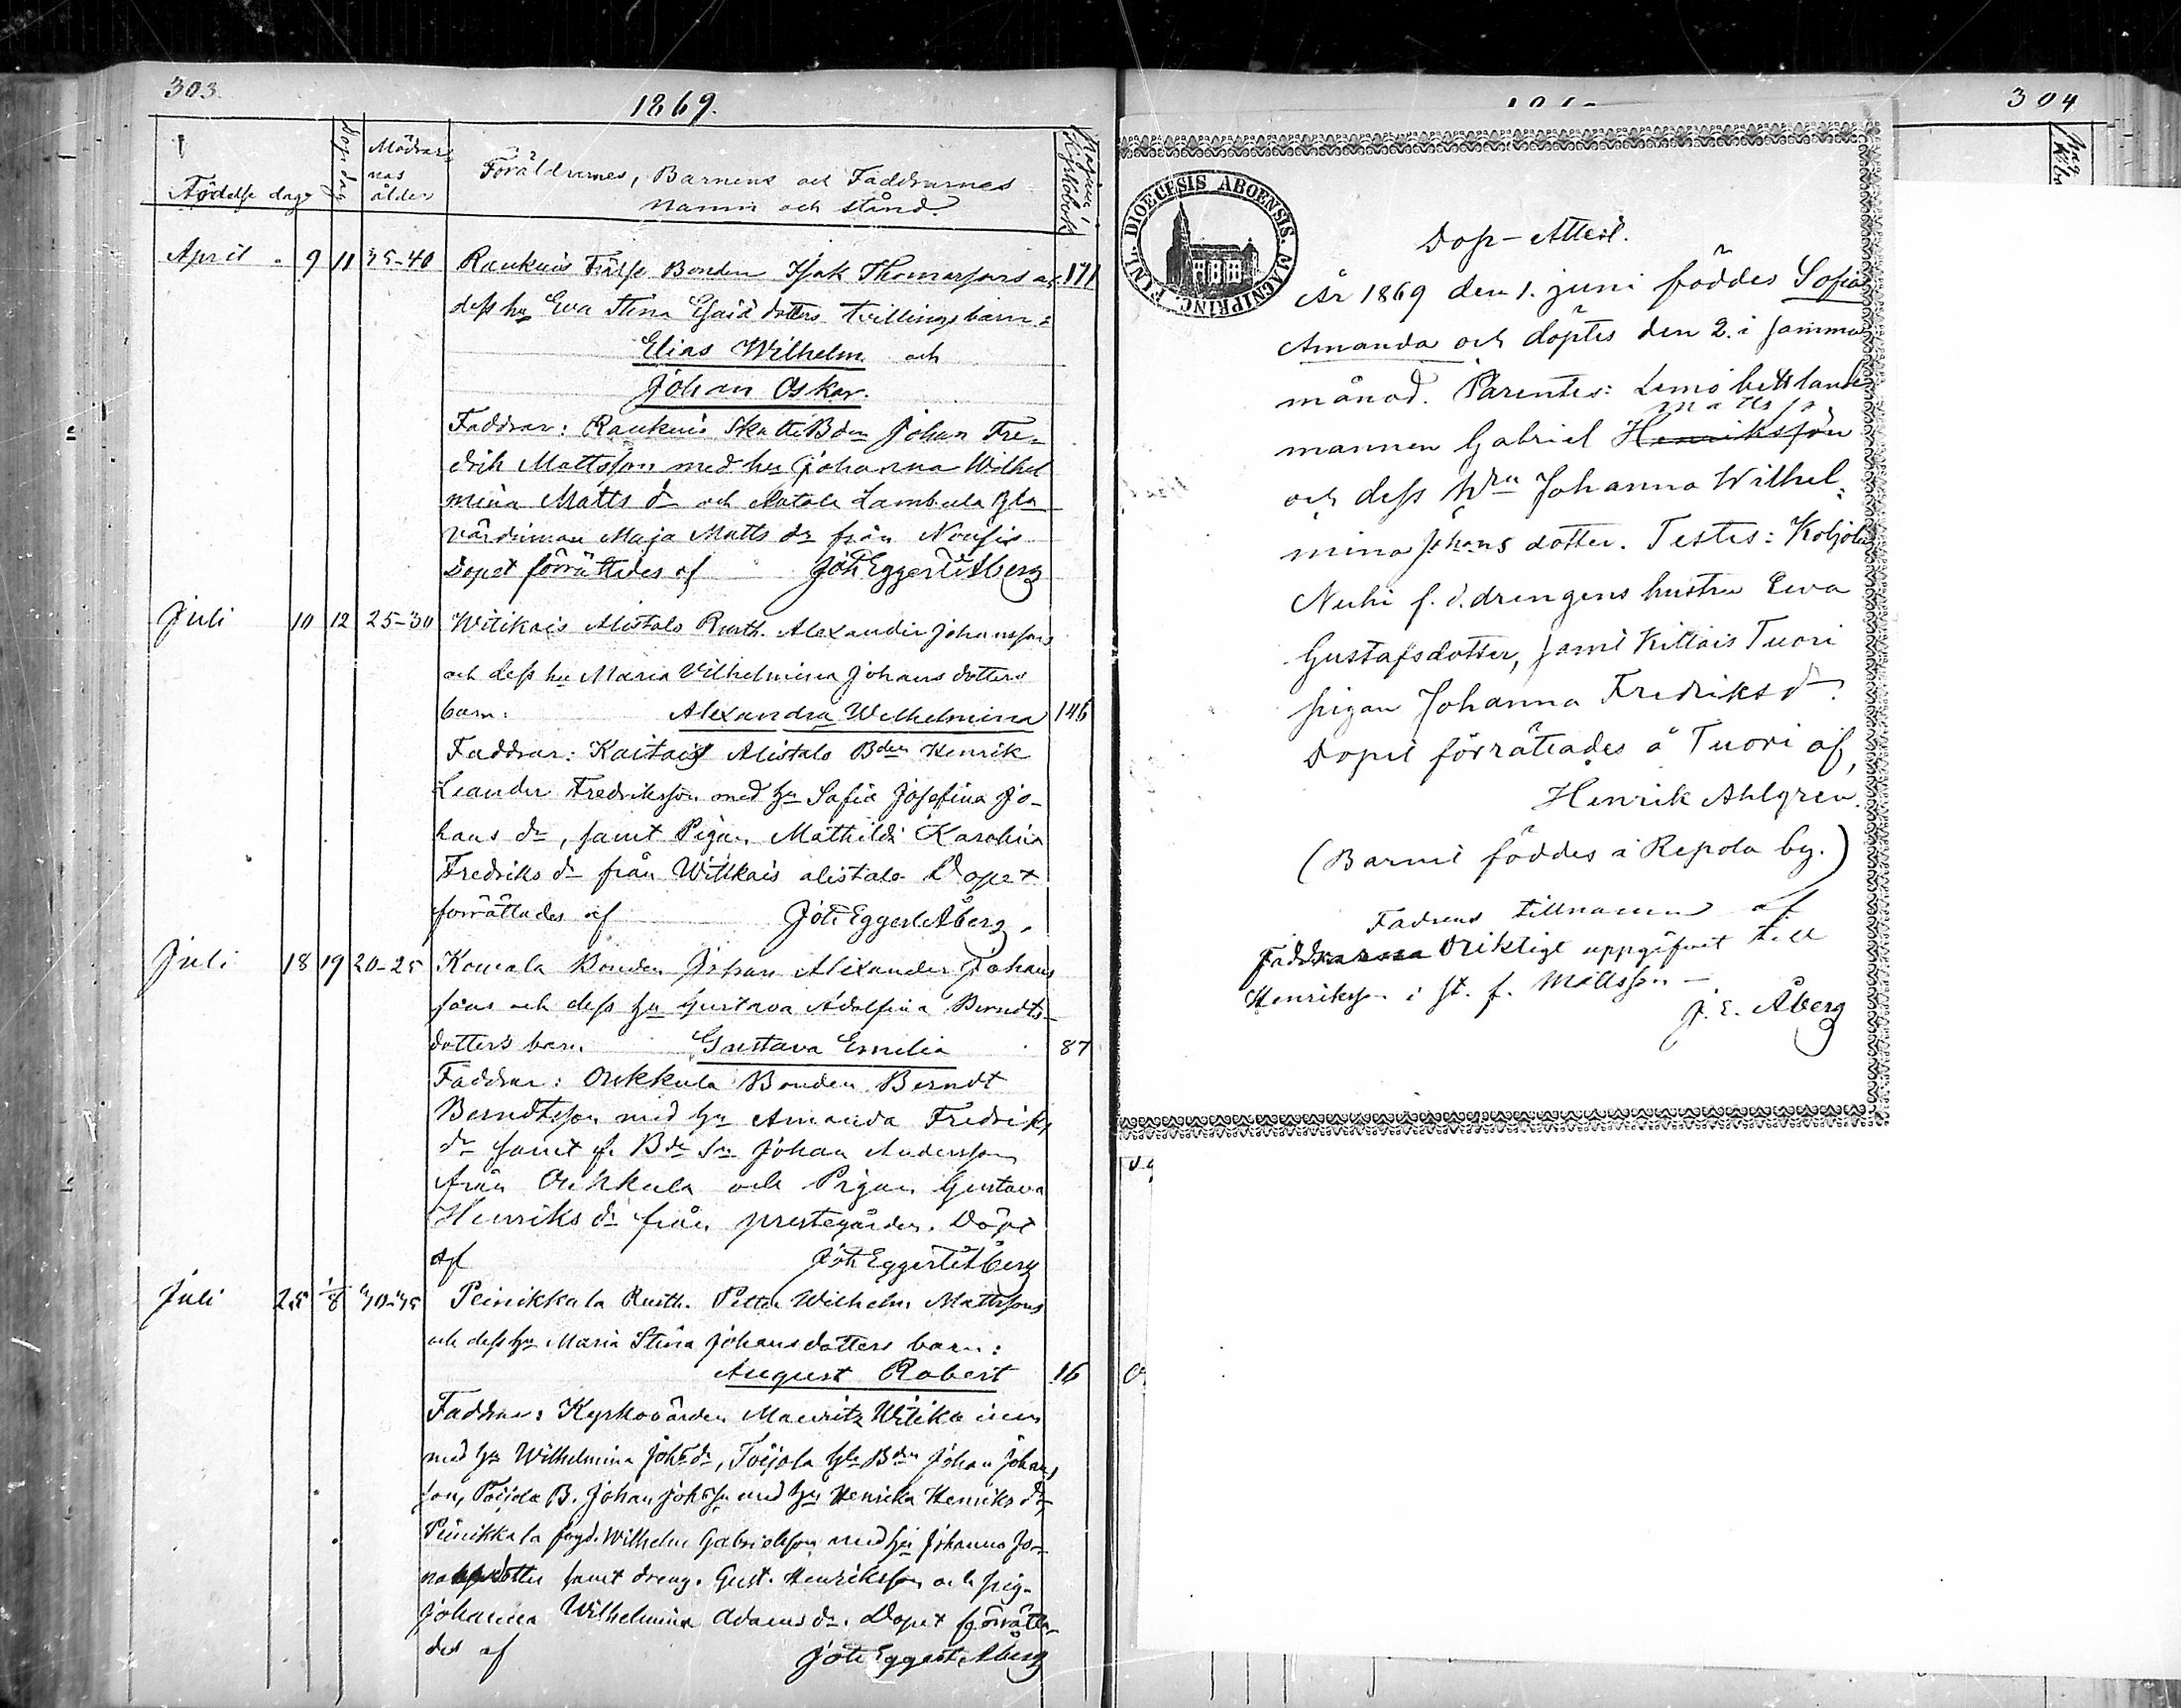 303.
1869.
Födelse dag
Dop dag
Mödrar-
nas
ålder
Föräldrarnes, Barnens och Faddrarnes
namn och stånd.
April 9 11 35-40 Raukuis Frälse Bonden Isak Thomassons och 171
dess hu Eva Stina Esaiä dotters tvillingsbarn:
Elias Wilhelm och
Johan Oskar.
Faddrar: Raukuis Skatte Bdn Johan Fre-
drik Mattsson med hu Johanna Wilhel
mina Matts dr och Lambula
värdinnan Maja Matts dr från Nousis
Dopet förrättades af Joh Eggert Åberg
Juli 10 12 25-30 Witikais Alistalo Rusth. Alexander Johanssons
och dess hu Maria Vilhelmina Johans dotters
barn: Alexandra Wilhelmina 146
Faddrar: Kaitais Alistalo Bden Henrik
Leander Fredriksson med hu Sofia Josefina Jo-
hans dr, samt Pigan Mathilda Karolina
Fredriks dr från Witikais alistalo Dopet
forrättades af Joh Eggert Åberg.
Juli 18 19 20-25 Kowala Bonden Johan Alexander Johans
sons och dess hu Gustava Adolfina Berndts-
dotters barn. Gustava Emilia 87
Faddrar: Oukkula Bonden Berndt
Berndtsson med hu Amanda Fredriks
dr samt f. Bde Sn Johan Andersson
från Ouhkula och Pigan Gustava
Henriks dr från prestegården. Döpt
af Joh Eggert Åberg
Juli 25 1/8 30-35 Peinikkala Rusth. Petter Wilhelm Mattssons
och dess hu Maria Stina Johansdotters barn:
August Robert 16
Faddrar: Kyrkovärden Mauritz Witikainen
med hu Wilhelmina Joh dr, Toijola Bden Johan Johans
son, Toijola B. Johan Johsn med hu Henrika Henriks dr,
Peinikkala Wilhelm Gabrielsson med hu Johanna Jo-
dotter samt dreng. Gust. Henriksson och pig.
Johanna Wilhelmina Adams dr. Dopet förrätta-
des af Joh Eggert Åberg
304
FINL. DIOECESIS ABOENSIS. MAGNI PRINC.
Dop-Attest.
År 1869 den 1. juni föddes Sofia
Amanda och döptes den 2. i samma
månad. Parentes: Lemo
mannen Gabriel Henriksson
och dess hru Johanna Wilhel:
mina Johans dotter. Testes: Koljola
Nuhi f. d. drengens hustru Eva
Gustafsdotter, samt Killais Tuori
pigan Johanna Fredriks dr.
Dopet förrättades å Tuori af,
Henrik Ahlgren.
(Barnet föddes i Repola by.)
Fadrens tillnamn af
Faddrarna Oriktigt uppgifvet till
Henriksson i st. f. Mattsson -
J. E. Åberg